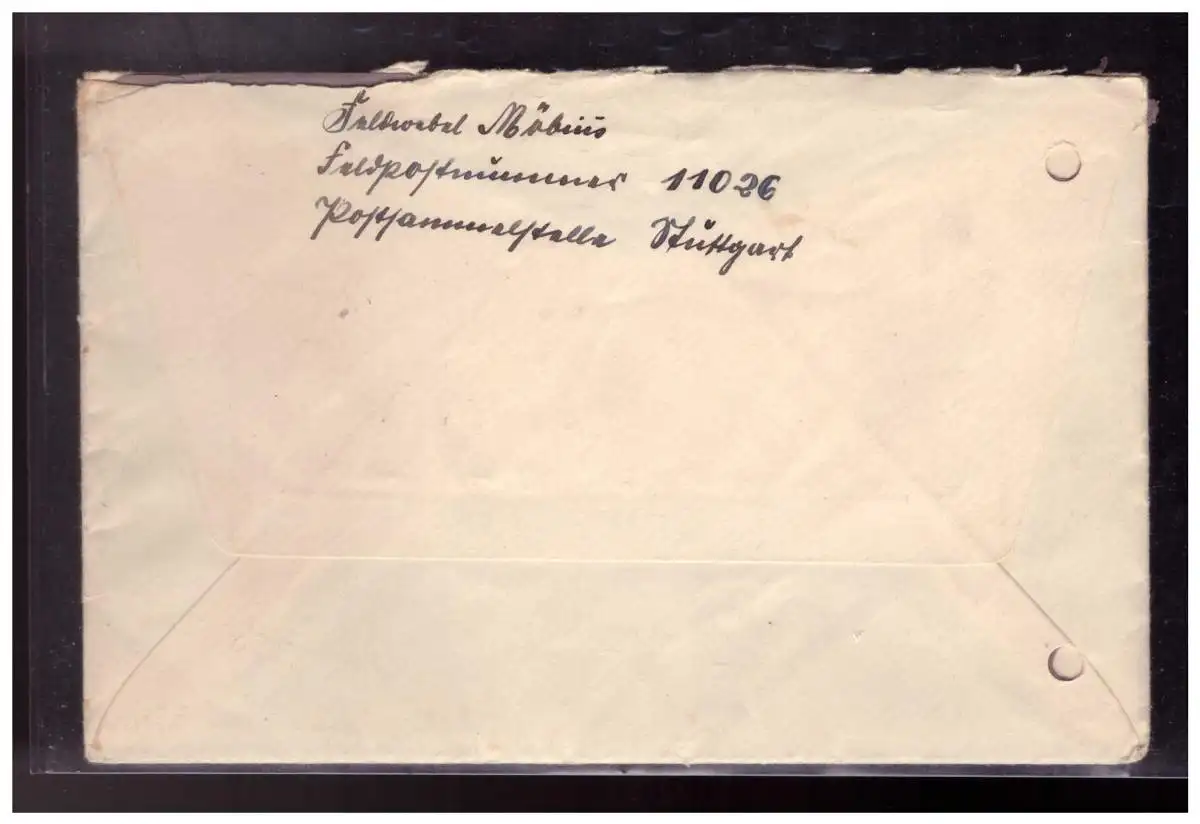 Feldwebel Möbius
Feldpostnummer 11026
Postsammelstelle Stuttgart